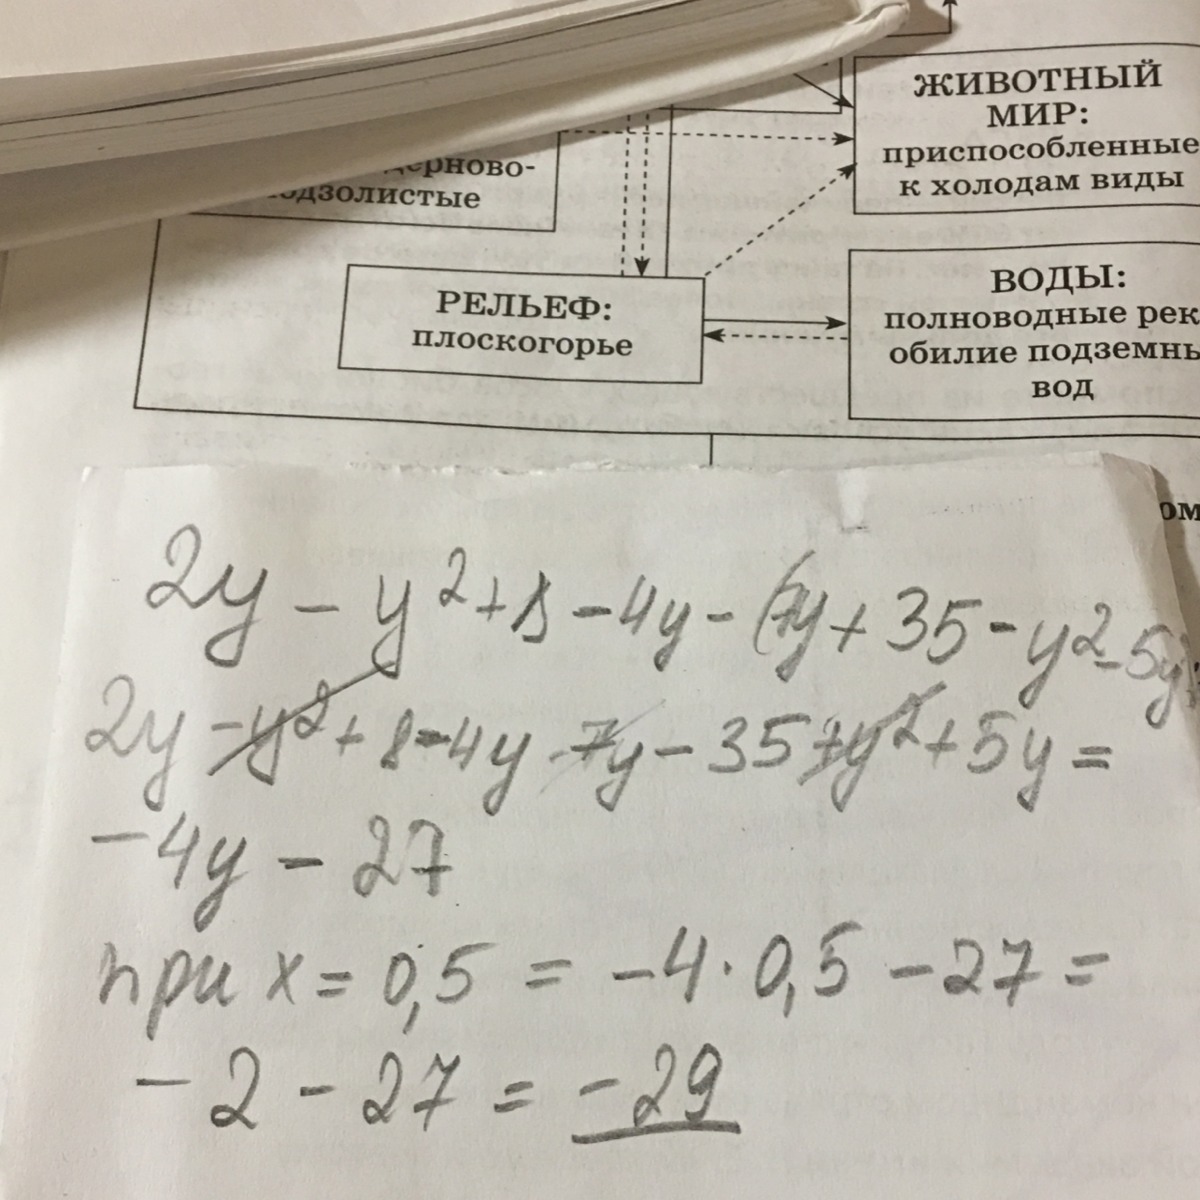 ЖИВОТНЫЙ
МИР:
приспособленные
к холодам виды
РЕЛЬЕФ:
плоскогорье
ВОДЫ:
полноводные рек
обилие подземны
вод
2y - y² + 8 - 4y - (7y + 35 - y² - 5y)
2y - y² + 8 - 4y - 7y - 35 + y² + 5y =
-4y - 27
при x = 0,5 = -4 · 0,5 - 27 =
-2 - 27 = -29